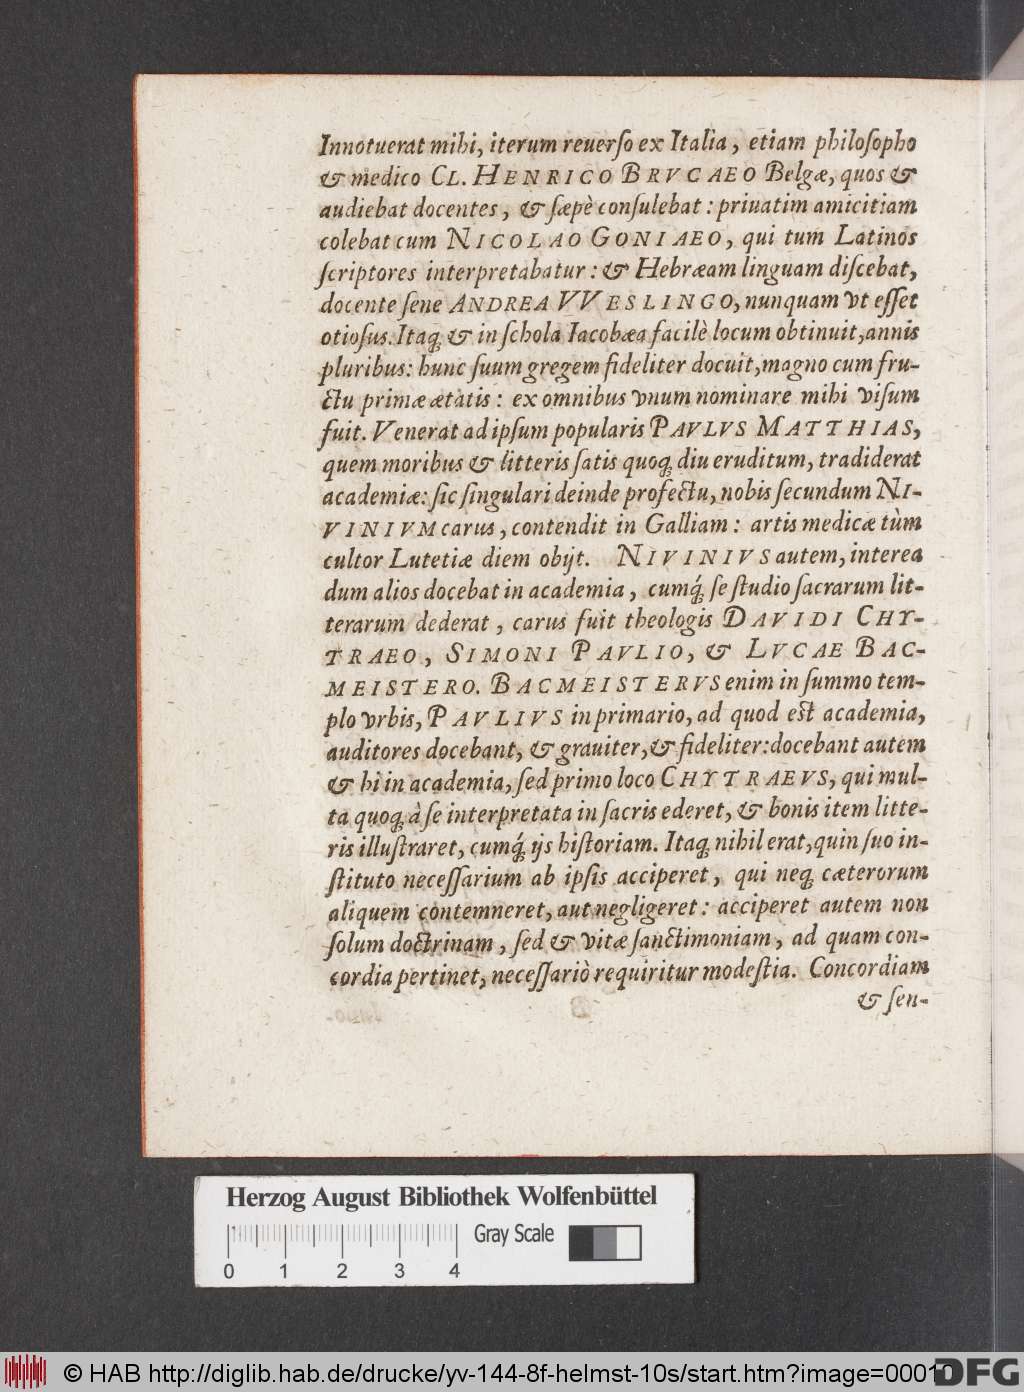 Innotuerat mihi, iterum reuerſo ex Italia, etiam philoſopho
& medico CL. HENRICO BRVCAEO Belgæ, quos &
audiebat docentes, & ſæpè conſulebat: priuatim amicitiam
colebat cum NICOLAO GONIAEO, qui tum Latinos
ſcriptores interpretabatur: & Hebræam linguam diſcebat,
docente ſene ANDREA VVESLINGO, nunquam vt eſſet
otioſus. Itaq; & in ſchola Iacobæa facilè locum obtinuit, annis
pluribus: hunc ſuum gregem fideliter docuit, magno cum fru-
ctu primæ ætatis: ex omnibus vnum nominare mihi viſum
fuit. Venerat ad ipſum popularis PAVLVS MATTHIAS,
quem moribus & litteris ſatis quoq; diu eruditum, tradiderat
academiæ: ſic ſingulari deinde profectu, nobis ſecundum NI-
VINIVM carus, contendit in Galliam: artis medicæ tùm
cultor Lutetiæ diem obijt. NIVINIVS autem, interea
dum alios docebat in academia, cumq́; ſe ſtudio ſacrarum lit-
terarum dederat, carus fuit theologis DAVIDI CHY-
TRAEO, SIMONI PAVLIO, & LVCAE BAC-
MEISTERO. BACMEISTERVS enim in ſummo tem-
plo vrbis, PAVLIVS in primario, ad quod eſt academia,
auditores docebant, & grauiter, & fideliter: docebant autem
& hi in academia, ſed primo loco CHYTRAEVS, qui mul-
ta quoq; à ſe interpretata in ſacris ederet, & bonis item litte-
ris illuſtraret, cumq́; ijs hiſtoriam. Itaq; nihil erat, quin ſuo in-
ſtituto neceſſarium ab ipſis acciperet, qui neq; cæterorum
aliquem contemneret, aut negligeret: acciperet autem non
ſolum doctrinam, ſed & vitæ ſanctimoniam, ad quam con-
cordia pertinet, neceſſariò requiritur modeſtia. Concordiam
& ſen-
Herzog August Bibliothek Wolfenbüttel
Gray Scale
0 1 2 3 4
© HAB http://diglib.hab.de/drucke/yv-144-8f-helmst-10s/start.htm?image=00010
DFG